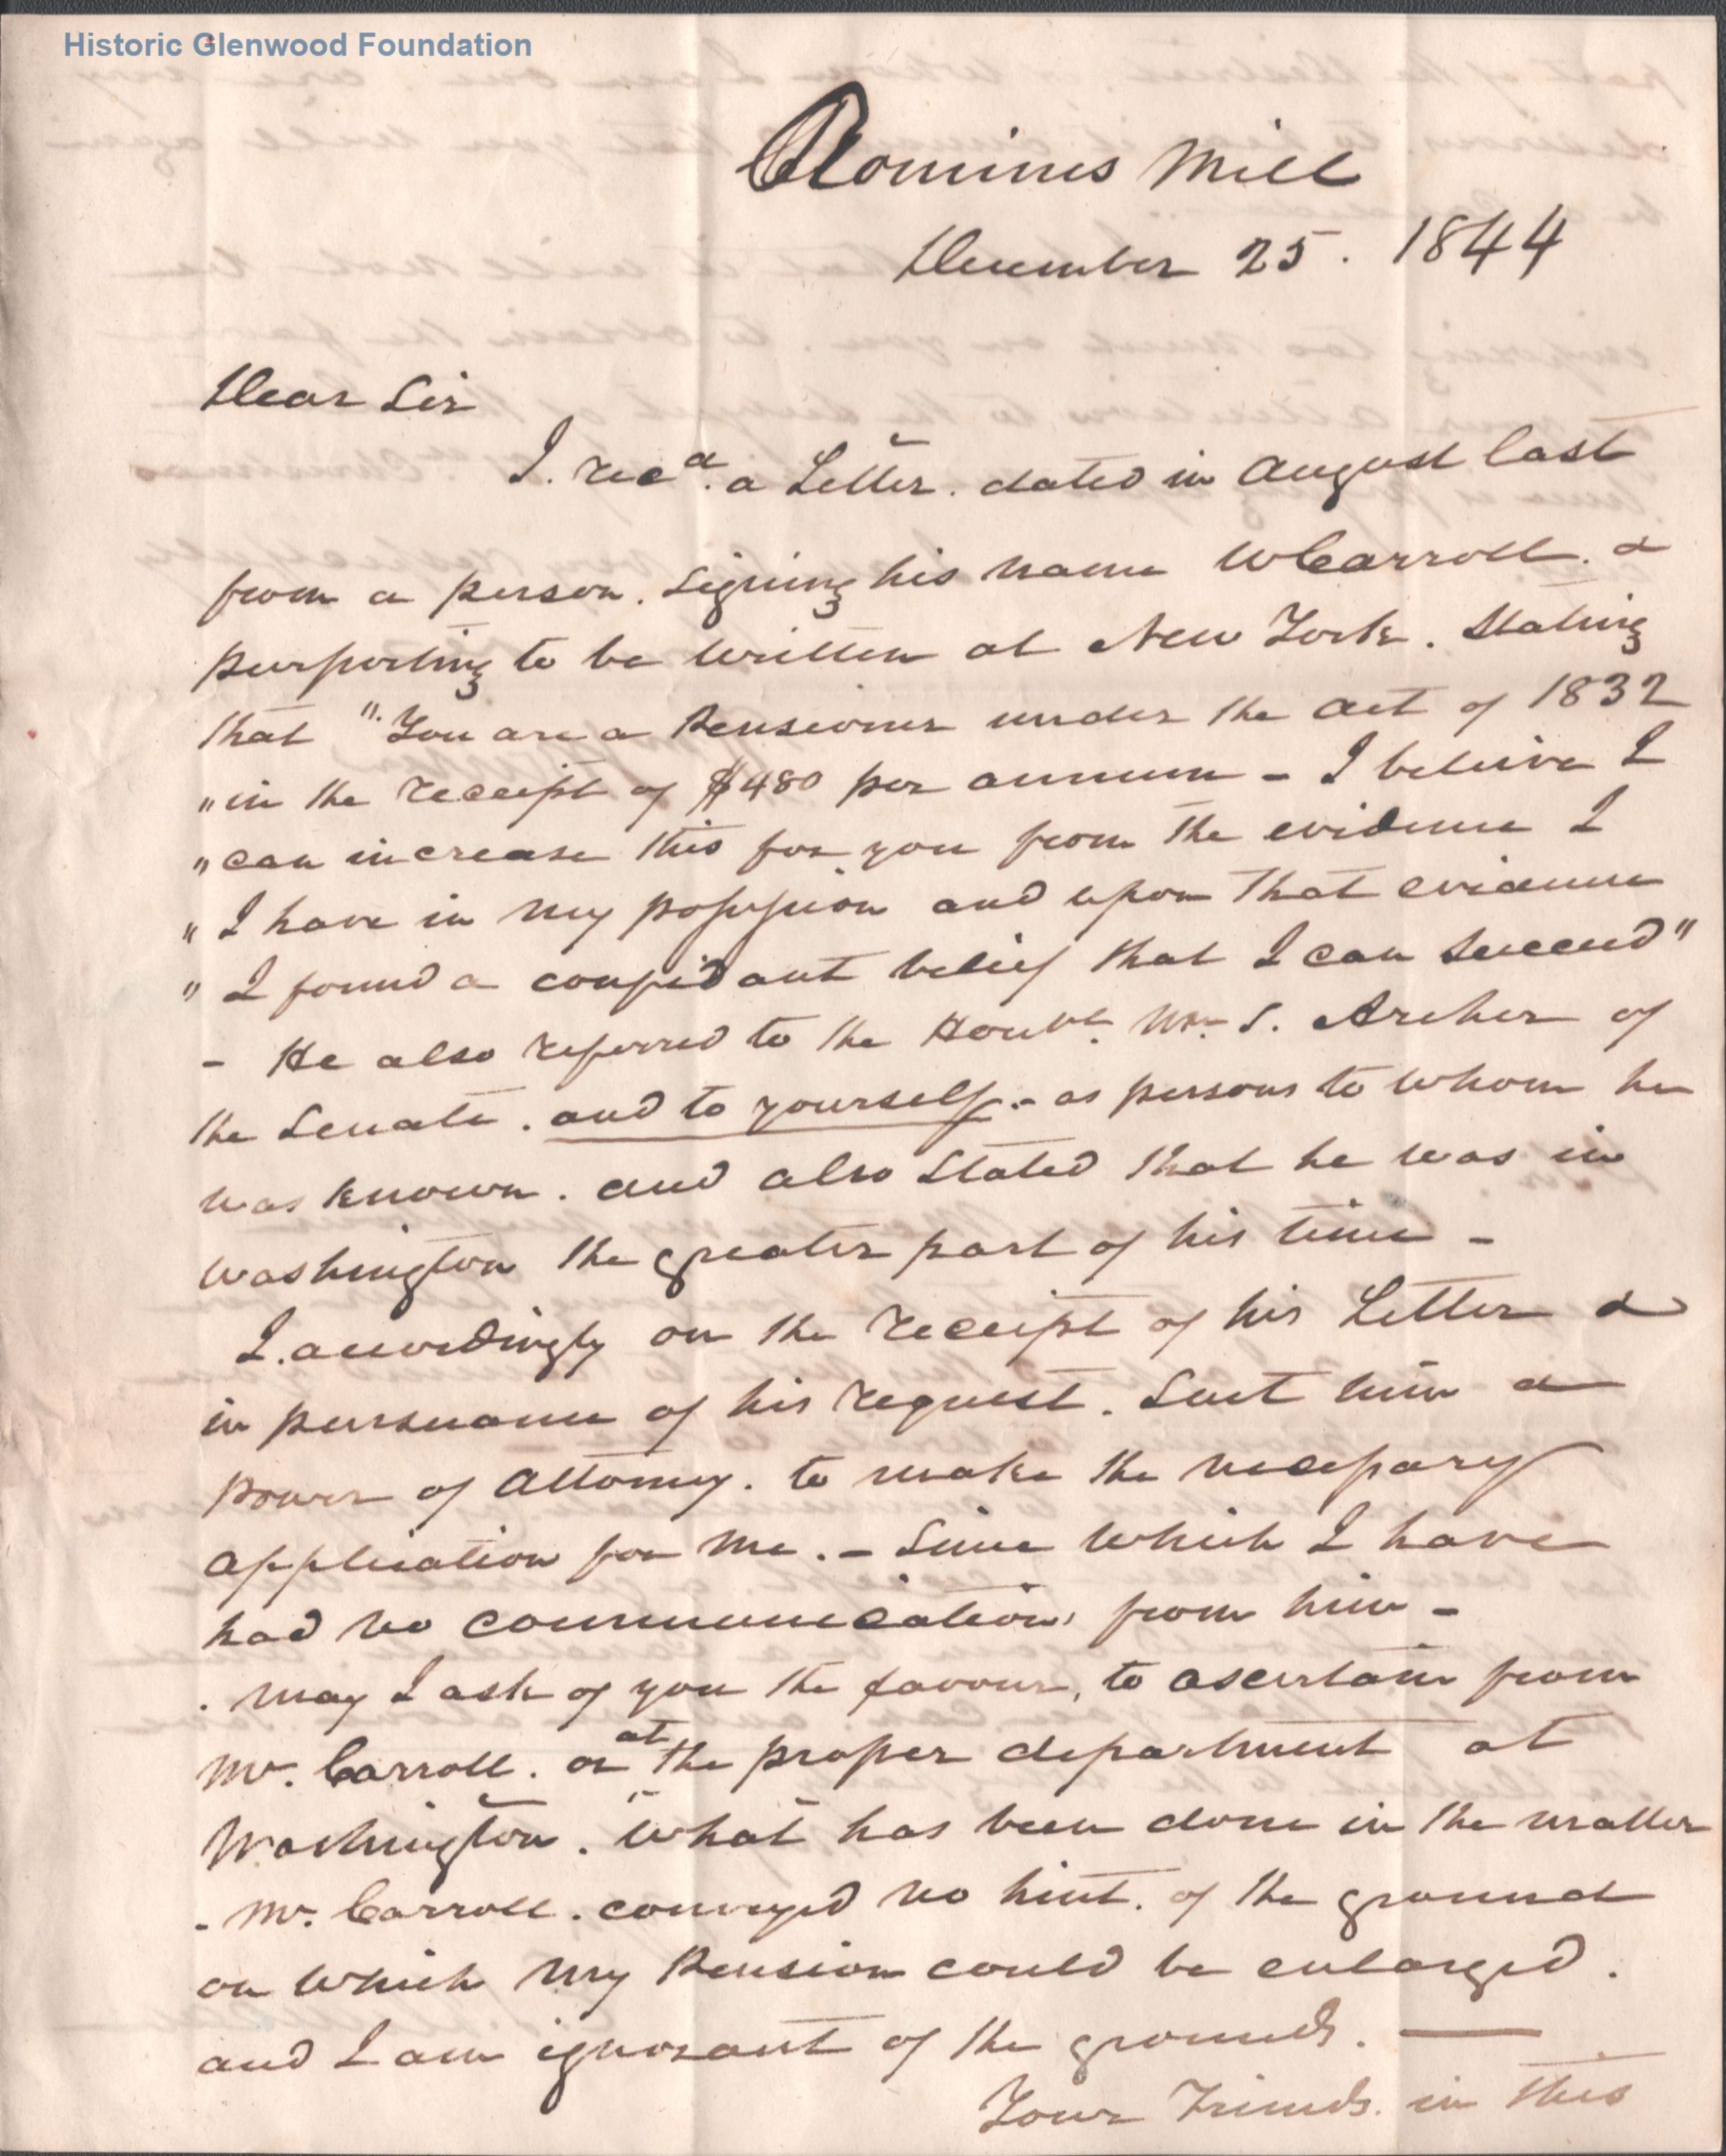 Historic Glenwood Foundation
Nominis Mill
December 25. 1844
Dear Sir
I. recd. a Letter. dated in August last
from a person. signing his name WCarroll. &
purporting to be written at New York. Stating
that ". You are a Pensioner under the act of 1832
" in the receipt of $480 per annum - I beleive I
" can increase this for you from the evidence I
" I have in my possession and upon that evidence
" I found a confidant belief that I can succeed"
- He also referred to the Honbl. Wm. S. Archer of
the Senate. and to yourself. - as persons to whom he
was known. and also stated that he was in
Washington the greater part of his time -
I. accordingly on the receipt of his Letter &
in pursuance of his request. Sent him a
Power of Attorney. to make the necessary
application for me. - Since which I have
had no communication from him -
. May I ask of you the favour, to ascertain from
Mr. Carroll. or at the proper department at
Washington. What has been done in the matter
- Mr. Carroll. conveyed no hint. of the ground
on which my Pension could be enlarged.
and I am ignorant of the grounds. —
Your Friends. in this